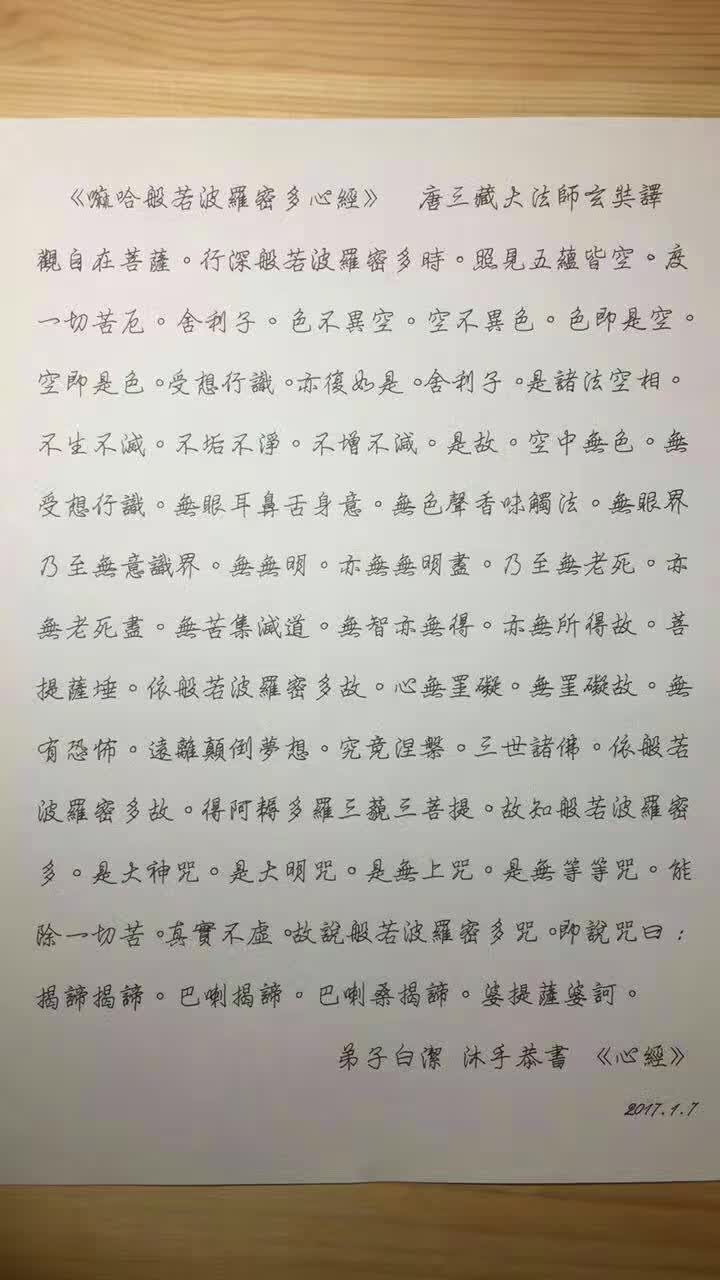 《嘛哈般若波羅密多心經》 唐三藏大法師玄奘譯
觀自在菩薩。行深般若波羅密多時。照見五蘊皆空。度
一切苦厄。舍利子。色不異空。空不異色。色即是空。
空即是色。受想行識。亦復如是。舍利子。是諸法空相。
不生不滅。不垢不淨。不增不減。是故。空中無色。無
受想行識。無眼耳鼻舌身意。無色聲香味觸法。無眼界
乃至無意識界。無無明。亦無無明盡。乃至無老死。亦
無老死盡。無苦集滅道。無智亦無得。亦無所得故。菩
提薩埵。依般若波羅密多故。心無罣礙。無罣礙故。無
有恐怖。遠離顛倒夢想。究竟涅槃。三世諸佛。依般若
波羅密多故。得阿耨多羅三藐三菩提。故知般若波羅密
多。是大神咒。是大明咒。是無上咒。是無等等咒。能
除一切苦。真實不虛。故說般若波羅密多咒。即說咒曰：
揭諦揭諦。巴喇揭諦。巴喇桑揭諦。婆提薩婆訶。
弟子白潔 沐手恭書 《心經》
2017.1.7